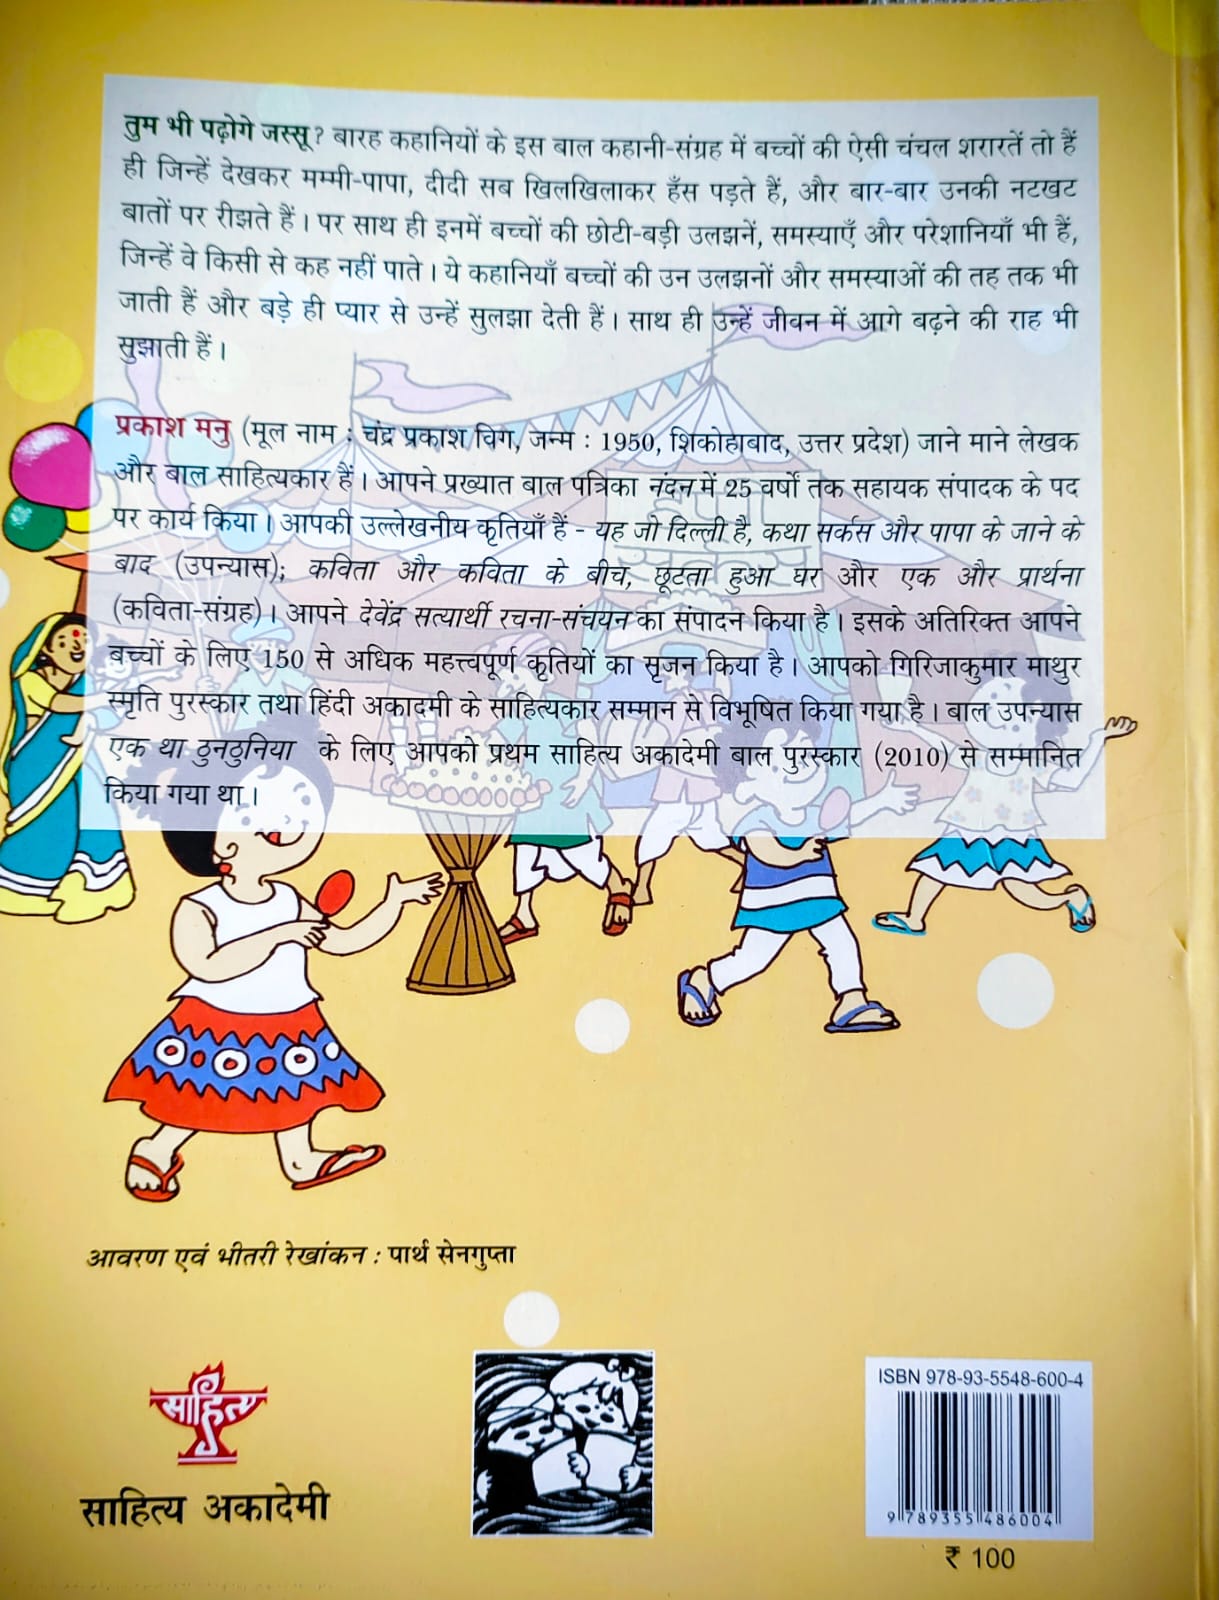 तुम भी पढ़ोगे जस्सू? बारह कहानियों के इस बाल कहानी-संग्रह में बच्चों की ऐसी चंचल शरारतें तो हैं
ही जिन्हें देखकर मम्मी-पापा, दीदी सब खिलखिलाकर हँस पड़ते हैं, और बार-बार उनकी नटखट
बातों पर रीझते हैं। पर साथ ही इनमें बच्चों की छोटी-बड़ी उलझनें, समस्याएँ और परेशानियाँ भी हैं,
जिन्हें वे किसी से कह नहीं पाते। ये कहानियाँ बच्चों की उन उलझनों और समस्याओं की तह तक भी
जाती हैं और बड़े ही प्यार से उन्हें सुलझा देती हैं। साथ ही उन्हें जीवन में आगे बढ़ने की राह भी
सुझाती हैं।
प्रकाश मनु (मूल नाम : चंद्र प्रकाश विग, जन्म : 1950, शिकोहाबाद, उत्तर प्रदेश) जाने माने लेखक
और बाल साहित्यकार हैं। आपने प्रख्यात बाल पत्रिका नंदन में 25 वर्षों तक सहायक संपादक के पद
पर कार्य किया। आपकी उल्लेखनीय कृतियाँ हैं - यह जो दिल्ली है, कथा सर्कस और पापा के जाने के
बाद (उपन्यास); कविता और कविता के बीच, छूटता हुआ घर और एक और प्रार्थना
(कविता-संग्रह)। आपने देवेंद्र सत्यार्थी रचना-संचयन का संपादन किया है। इसके अतिरिक्त आपने
बच्चों के लिए 150 से अधिक महत्त्वपूर्ण कृतियों का सृजन किया है। आपको गिरिजाकुमार माथुर
स्मृति पुरस्कार तथा हिंदी अकादमी के साहित्यकार सम्मान से विभूषित किया गया है। बाल उपन्यास
एक था ठुनठुनिया के लिए आपको प्रथम साहित्य अकादेमी बाल पुरस्कार (2010) से सम्मानित
किया गया था।
आवरण एवं भीतरी रेखांकन : पार्थ सेनगुप्ता
साहित्य
साहित्य अकादेमी
ISBN 978-93-5548-600-4
9 789355 486004
₹ 100